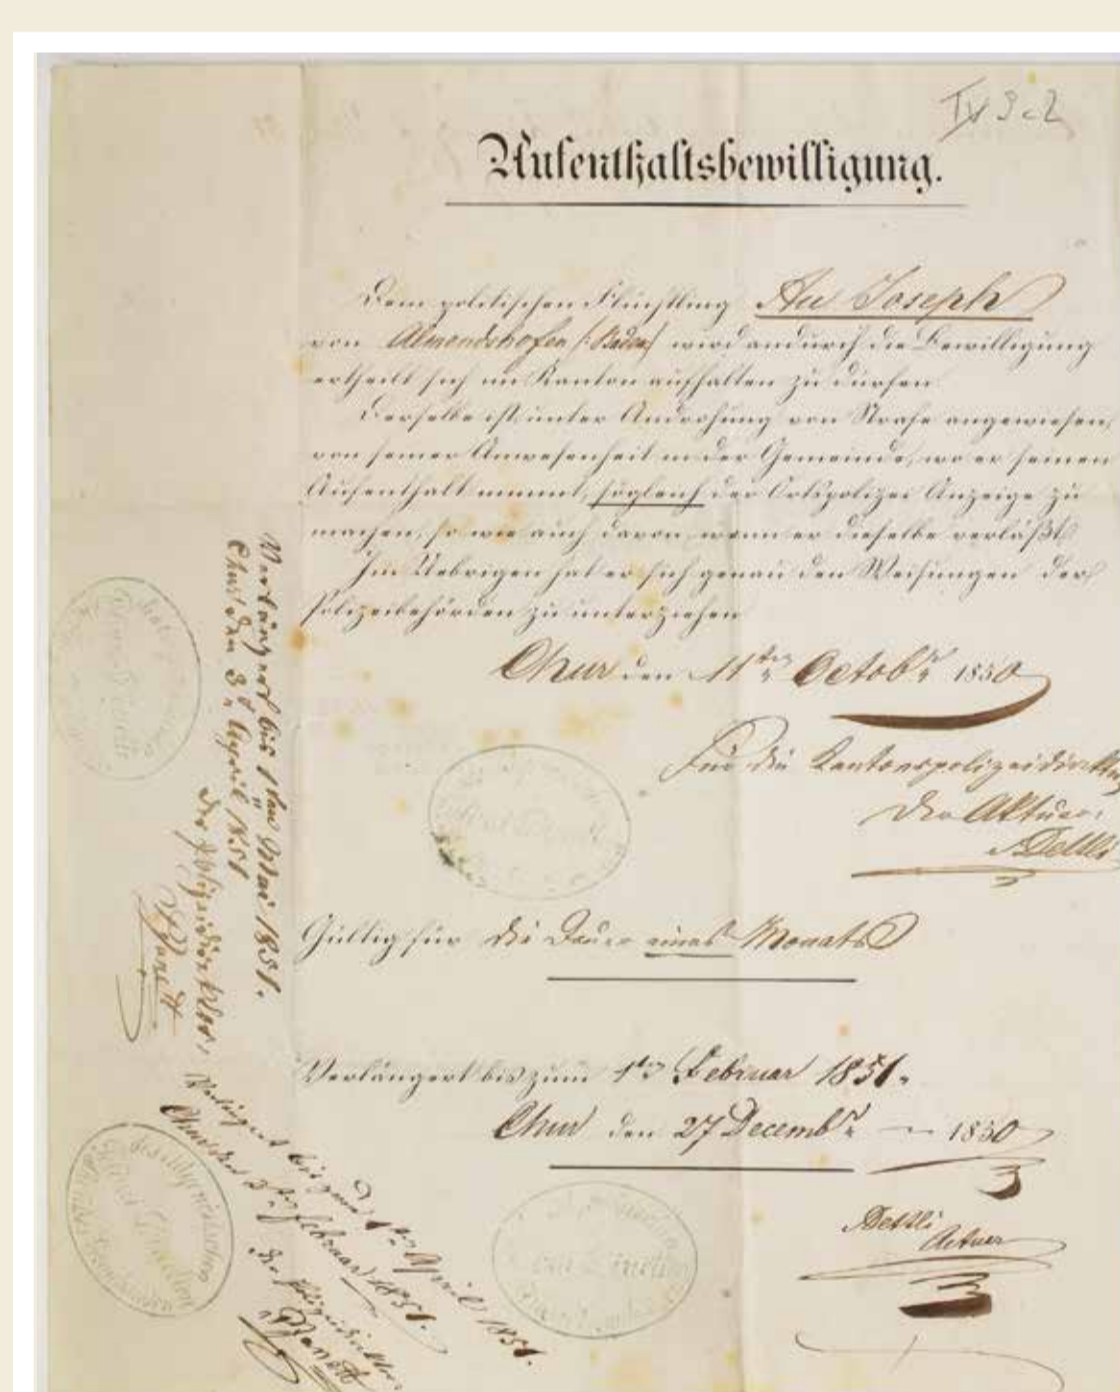 IV 3 c 2
Aufenthaltsbewilligung.
Dem politischen Flüchtling Au Joseph
von Almendshofen /: Baden/ wird andurch die Bewilligung
ertheilt sich im Kanton aufhalten zu dürfen.
Derselbe ist unter Androhung von Strafe angewiesen,
von seiner Anwesenheit in der Gemeinde, wo er seinen
Aufenthalt nimmt, sogleich der Ortspolizei Anzeige zu
machen, so wie auch davon, wenn er dieselbe verläßt.
Im Uebrigen hat er sich genau den Weisungen der
Polizeibehörden zu unterziehen
Chur den 11ten Octobr 1850
Für die Kantonspolizeidirektion
Der Aktuar:
Gültig für die Dauer eines Monats
Verlängert bis zum 1ten Februar 1851.
Chur den 27 Decembr 1850
Actuar
Verlängert bis 1ten Mai 1851.
Chur den 3t April 1851
Der Polizeidirektor,
Verlängert bis zum 1ten April 1851.
Chur den Februar 1851.
Der Polizeidirektor